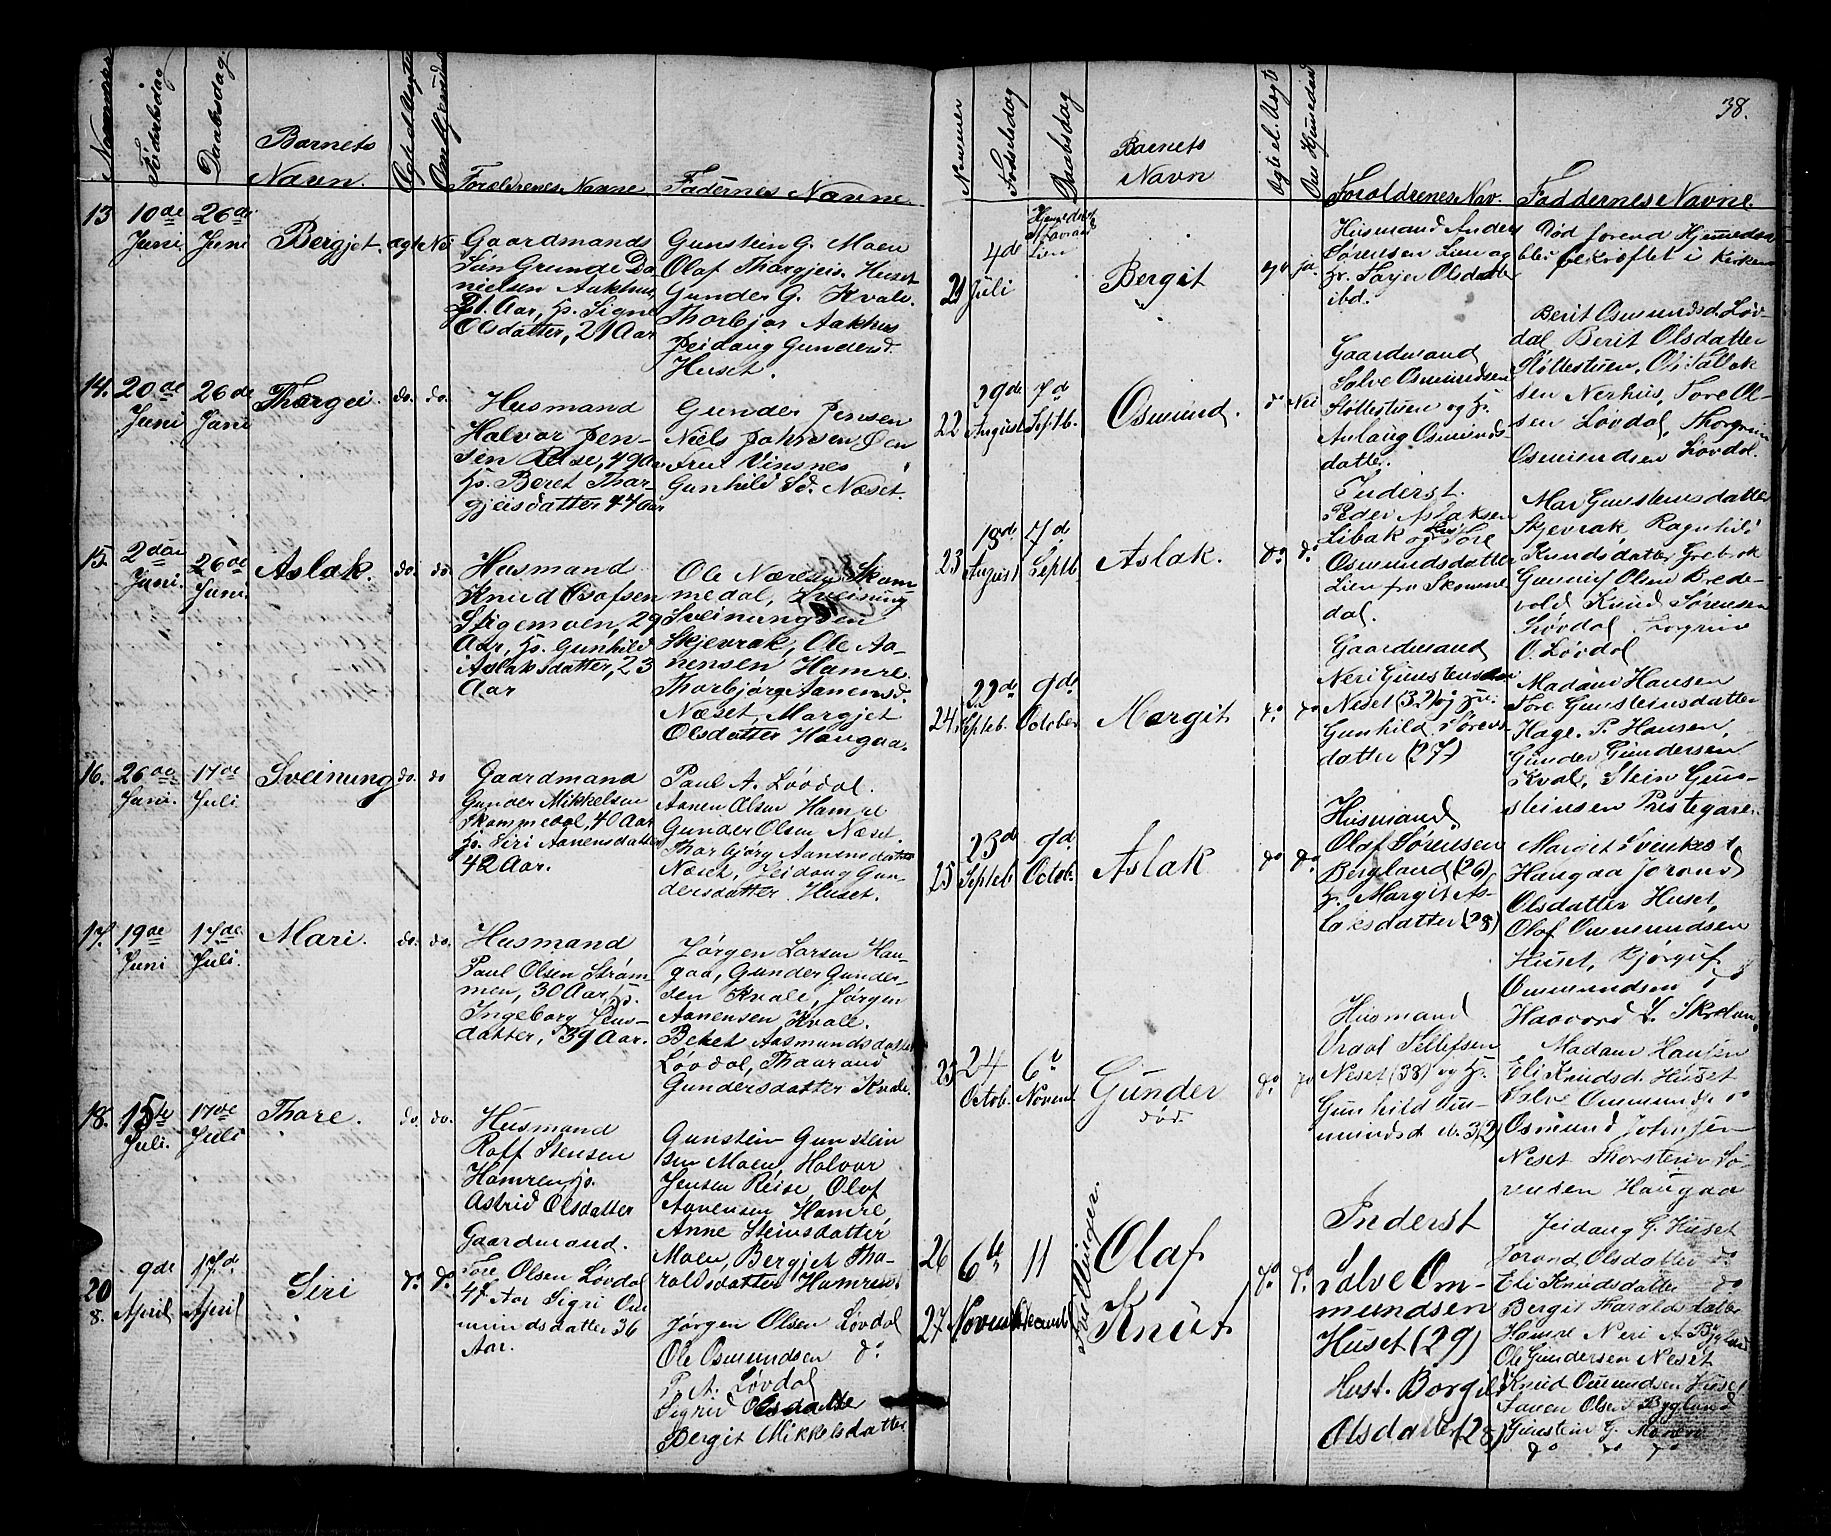 Fødselsdag
Daabsdag.
Barnets
Navn.
Forældrenes Navne
Faddernes Navne
13
10de
Juni
26de
Juni
Bergjet.
ægte
Nei
Gaardmands
Søn Grunde Da
nielsen Aakhus,
21. Aar, H. Signe
Olsdatter, 21 Aar
Gunstein G. Moen
Olaf Thorgjeis. Huset
Gunder G. Kvale.
Thorbjør Aakhus
Jeidang Gundersd.
Huset.
14.
20de
Juni
26de
Juni
Thorgei.
do.
do.
Husmand
Halvor Jen-
sen Reise, 49 Aar
H. Beret Thor-
gjeisdatter 44 Aar
Gunder Jensen
Niels Johnsen,
Fru Vinsnes
Gunhild Næset.
15.
2den
Juni.
26de
Juni
Aslak.
do.
do.
Husmand
Knud Olafsen
Stigemoen, 29
Aar, H. Gunhild
Aslaksdatter, 23
Aar
Ole Næresen Skom-
medal, Sveinung
Sveinungsen
Skjevrak, Ole Aa-
nensen Hamre.
Thorbjørg Aanensd.
Næset, Margjet
Olsdatter Haugaa.
16.
26de
Juni.
17de
Juli
Sveinung
do.
do
Gaardmand
Gunder Mikkelsen
Skommedal, 40 Aar
H. Siri Aanensdatter
42 Aar.
Paul A. Løvdal.
Aanen Olsen Hamre
Gunder Olsen Næset.
Thorbjørg Aanensdatter
Næset, Jeidang Gun-
dersdatter Huset.
17.
19de
Juni
17de
Juli.
Mari.
do.
do.
Husmand
Paul Olsen Strøm-
men, 30 Aar, H.
Ingeborg Jens-
datter, 39 Aar.
Jørgen Larsen Hau-
gaa, Gunder Gunder-
sen Kvale, Jørgen
Aanensen Kvale.
Beret Aasmundsdatter
Løvdal, Thaarand
Gundersdatter Kvale.
18.
15de
Juli.
17de
Juli
Thore.
do.
do.
Husmand
Roff Stensen
Hamren, H.
Astrid Olsdatter
Gunstein Gunstein
sen Moen, Halvor
Jensen Reise, Olaf
Aanensen Hamre,
Anne Steinsdatter
Moen, Bergjet Tho-
raldsdatter Hamren.
20
8.
9de
April
17de
April
Siri
do
do
Gaardmand.
Tore Olsen Løvdal
47 Aar Sigri Os
mundsdatter 36
Aar.
Jørgen Olsen Løvdal
Ole Osmundsen do
P. A. Løvdal
Sigrid Olsdatter
Bergit Mikkelsdatter
38.
Nummer
Fødselsdag
Daabsdag
Barnets
Navn
Ægte el. Uægte
Forældrenes Nav.
Faddernes Navne
21
4de
Juli
Hjemedøbt
Lien
Bergit
Husmand Anders
Sørensen Lien og
H. Tarjer Olsdatter
ibd.
Død forend Hjemedaab
blev bekræftet i Kirken
22
29de
August
7d
Septb.
Osmund.
do
Nei
Gaardmand
Salve Osmundsen
Støllestuen og H.
Anlaug Osmunds-
datter.
Berit Osmundsd. Løv-
dal Berit Olsdatter
Støllestuen, Ole Tallak
sen Nerhus, Tore Ol-
sen Løvdal, Thorgrim
Osmundsen Løvdal.
23
18d
August
7d
Septb
Aslak.
do
do
Inderst.
Peder Aslaksen
Libak og Tore
Osmundsdatter
Lien fra Skomme
dal.
Mari Gunsteinsdatter
Skjevrak, Ragnhild
Knudsdatter
Gunnuf Olsen Brede-
vold Knud Sørensen
Løvdal Torgrim
O. Løvdal
24.
22de
Septeb.
9de
October
Margit
do
do
Gaardmand
Neri Gunsteinsen
Neset (32) og H.
Gunhild Sørens
datter (27)
Madam Hansen
Tore Gunsteinsdatter
Hage. P. Hansen,
Gunder Gundersen
Kvale, Stein Gun-
steinsen Prestegare.
25
23d
Septeb
9d
Octob.
Aslak
do
do.
Husmand
Olaf Sørensen
Bergland (26)
H. Margit As-
laksdatter (28)
Margit
Haugaa Jorand
Olsdatter Huset,
Olaf Osmundsen
Huset, Bjørguf
Osmundsen do
Haavord
23
24
Octob.
6te
Novem.
Gunder
død.
do
do
Husmand
Ordal Tellefsen
Neset (38) og H.
Gunhild Sun-
mundsd. (32)
Madam Hansen
Eli Knudsd. Huset
Salve Osmunds. do
Osmund Johnsen
Neset Thorstein Sø-
rensen Haugaa
26
27
6te
Novemb
11
Decemb
Tvillinger.
Olaf
Knut
do
do.
Inderst
Salve Om-
mundsen
Huset (29)
Hust. Borgil
Olsdatter (28)
Jeidang G. Huset
Jorand Olsdatter do
Eli Knudsdatter do
Bergit Tharaldsdatter
Hamre Neri A. Bygland
Ole Gundersen Neset
Knud Osmundsen Huset
Olsen Bygland
Gunstein G. Moen
do do do